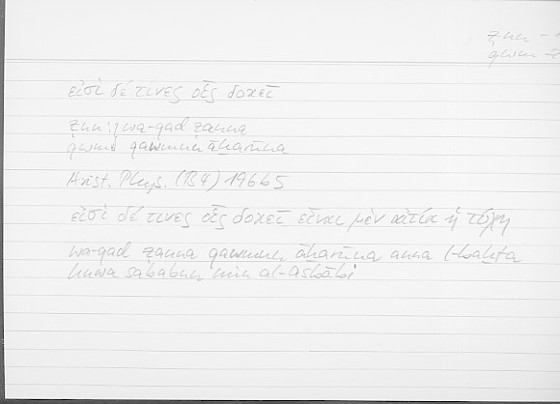 ẓnn - 1
qwm - 2
εἰσὶ δέ τινες οἷς δοκεῖ
ẓnn: wa-qad ẓanna
qwm: qawmun āḫarūna
Arist. Phys. (B4) 196b5
εἰσὶ δέ τινες οἷς δοκεῖ εἶναι μὲν αἰτία ἡ τύχη
wa-qad ẓanna qawmun āḫarūna anna l-baḫta
huwa sababun min al-asbābi